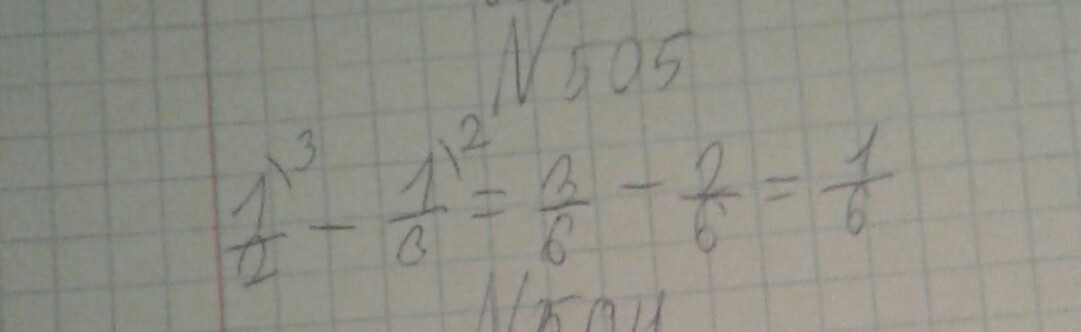 N 505
1/2\3 - 1/3\2 = 3/6 - 2/6 = 1/6